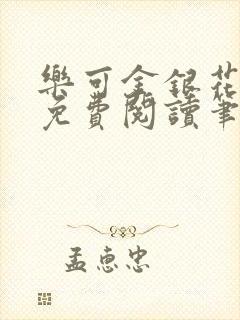 樂可金銀花
免費閱讀筆
孟恵忠